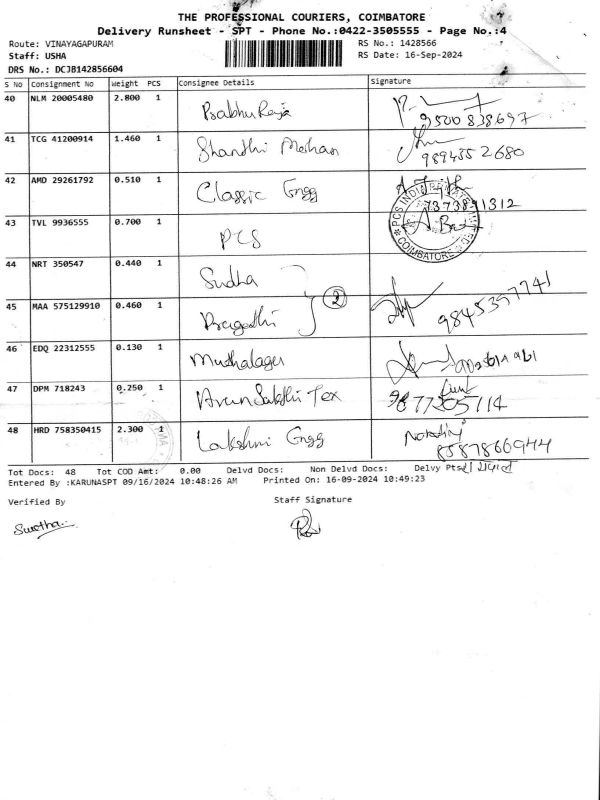 THE PROFESSIONAL COURIERS, COIMBATORE
Delivery Runsheet - SPT - Phone No.:0422-3505555 - Page No.:4
Route: VINAYAGAPURAM RS No.: 1428566
Staff: USHA RS Date: 16-Sep-2024
DRS No.: DCJB142856604
S No Consignment No Weight PCS Consignee Details Signature
40 NLM 20005480 2.800 1 Prabhu Raja
9500838697
41 TCG 41200914 1.460 1 Shandhi Mohan
9894352680
42 AMD 29261792 0.510 1 Classic Engg
7373891312
43 TVL 9936555 0.700 1 PCS
PCS INDIA PRIVATE LIMITED COIMBATORE
44 NRT 350547 0.440 1 Sudha
2
45 MAA 575129910 0.460 1 Pragathi
9845357741
46 EDQ 22312555 0.130 1 Muthalagu
47 DPM 718243 0.250 1 Arun Sakthi Tex
9877205114
48 HRD 758350415 2.300 1 Lakshmi Engg
8587866944
Tot Docs: 48 Tot COD Amt: 0.00 Delvd Docs: Non Delvd Docs: Delvy Pts:
Entered By :KARUNASPT 09/16/2024 10:48:26 AM Printed On: 16-09-2024 10:49:23
Verified By Staff Signature
Swetha